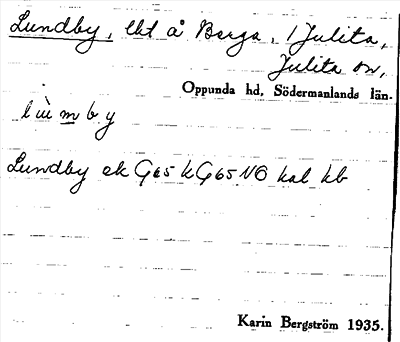 Lundby, lht å Berga, 1 Julita,
Julita sn,
Oppunda hd, Södermanlands län.
lùmby
Lundby ek G65 k G65 NO kal kb
Karin Bergström 1935.